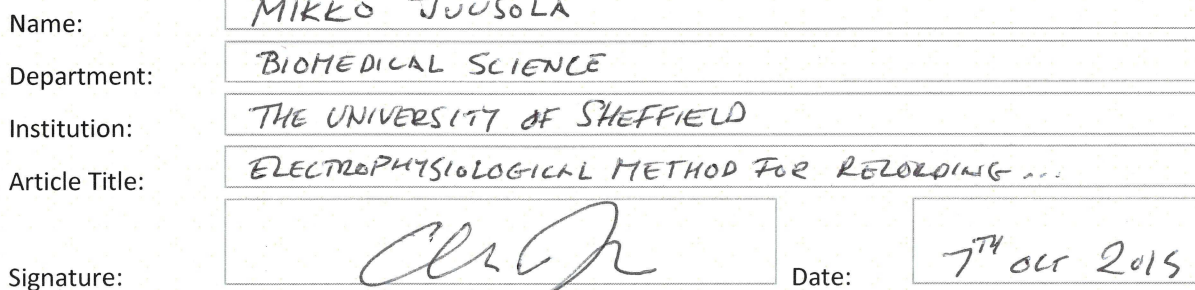 Name: MIKKO JUUSOLA
Department: BIOMEDICAL SCIENCE
Institution: THE UNIVERSITY OF SHEFFIELD
Article Title: ELECTROPHYSIOLOGICAL METHOD FOR RECORDING ...
Signature: Date: 7TH OCT 2015